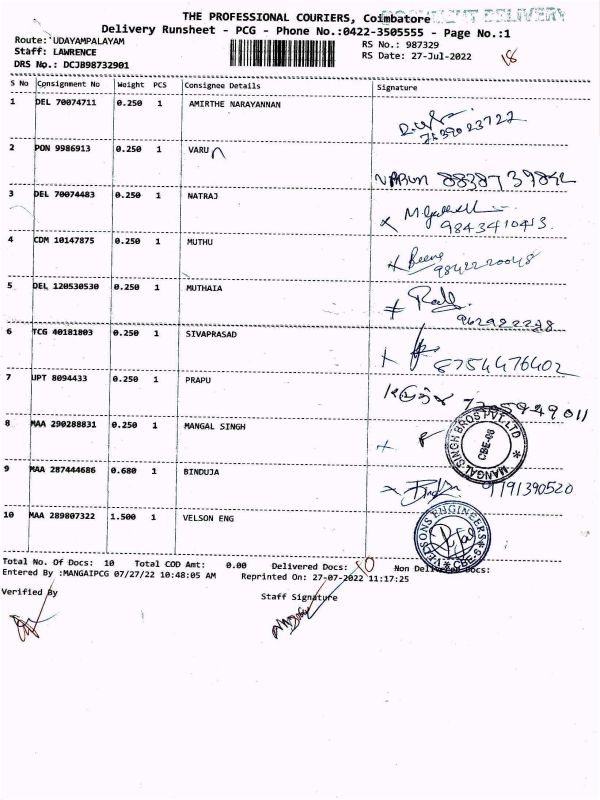 THE PROFESSIONAL COURIERS, Coimbatore
Delivery Runsheet - PCG - Phone No.:0422-3505555 - Page No.:1
Route: UDAYAMPALAYAM
RS No.: 987329
Staff: LAWRENCE
RS Date: 27-Jul-2022
18
DRS No.: DCJB98732901
S No Consignment No Weight PCS Consignee Details Signature
1 DEL 70074711 0.250 1 AMIRTHE NARAYANNAN
2 PON 9986913 0.250 1 VARUN
VARUN
3 DEL 70074483 0.250 1 NATRAJ
9843410413
4 CDM 10147875 0.250 1 MUTHU
5 DEL 120530530 0.250 1 MUTHAIA
6 TCG 40181803 0.250 1 SIVAPRASAD
8754476402
7 UPT 8094433 0.250 1 PRAPU
8 MAA 290288831 0.250 1 MANGAL SINGH
MANGAL SINGH BROS PVT LTD
CBE-08
9 MAA 287444686 0.680 1 BINDUJA
9791390520
10 MAA 289807322 1.500 1 VELSON ENG
VELSONS ENGINEERS
CBE-6
Total No. Of Docs: 10 Total COD Amt: 0.00 Delivered Docs: 10 Non Delivered Docs:
Entered By :MANGAIPCG 07/27/22 10:48:05 AM Reprinted On: 27-07-2022 11:17:25
Verified By
Staff Signature